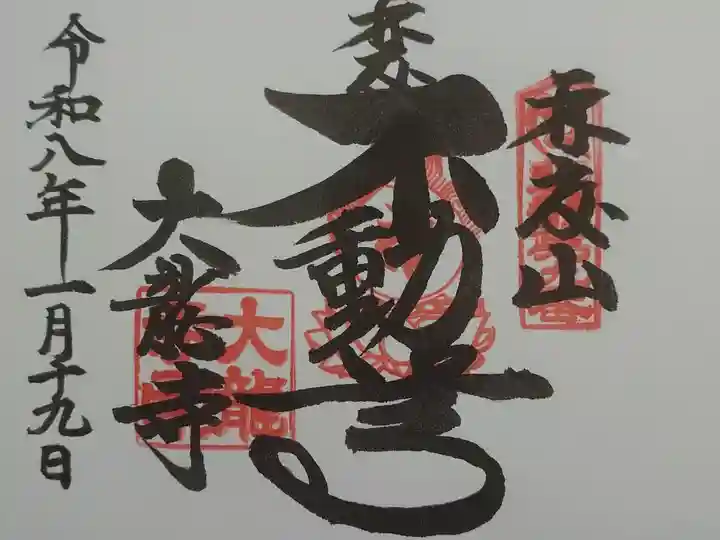 山
不動尊
大龍寺
大龍寺
令和八年一月十九日